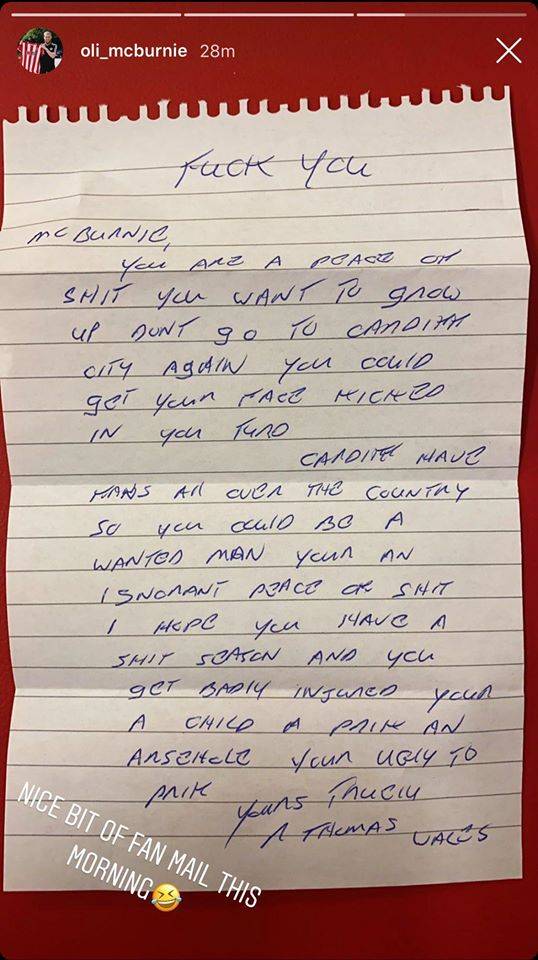 oli_mcburnie 28m
FUCK YOU
MCBURNIE,
YOU ARE A PEACE OF
SHIT YOU WANT TO GROW
UP DONT GO TO CARDIFF
CITY AGAIN YOU COULD
GET YOUR FACE KICKED
IN YOU TURD
CARDIFF HAVE
FANS All OVER THE COUNTRY
SO YOU COULD BE A
WANTED MAN YOUR AN
IGNORANT PEACE OF SHIT
I HOPE YOU HAVE A
SHIT SEASON AND YOU
GET BADLY INJURED YOUR
A CHILD A PRIK AN
ARSEHOLE YOUR UGLY TO
PRIK
YOURS TRUELY
R THOMAS WALES
NICE BIT OF FAN MAIL THIS
MORNING😂